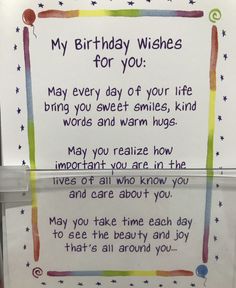 My Birthday Wishes
for you:
May every day of your life
bring you sweet smiles, kind
words and warm hugs.
May you realize how
important you are in the
lives of all who know you
and care about you.
May you take time each day
to see the beauty and joy
that's all around you...